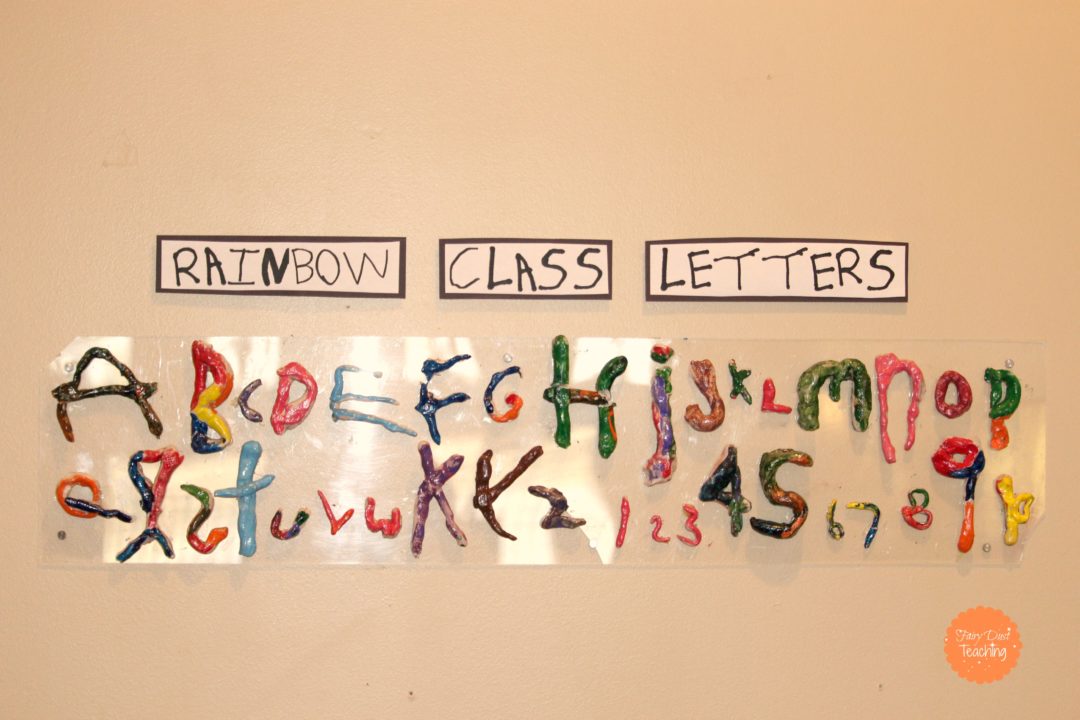 RAINBOW CLASS LETTERS
A B c D E F G H j J K L m n O P
Q R S t u v w X Y z 1 2 3 4 5 6 7 8 9
Fairy Dust
Teaching